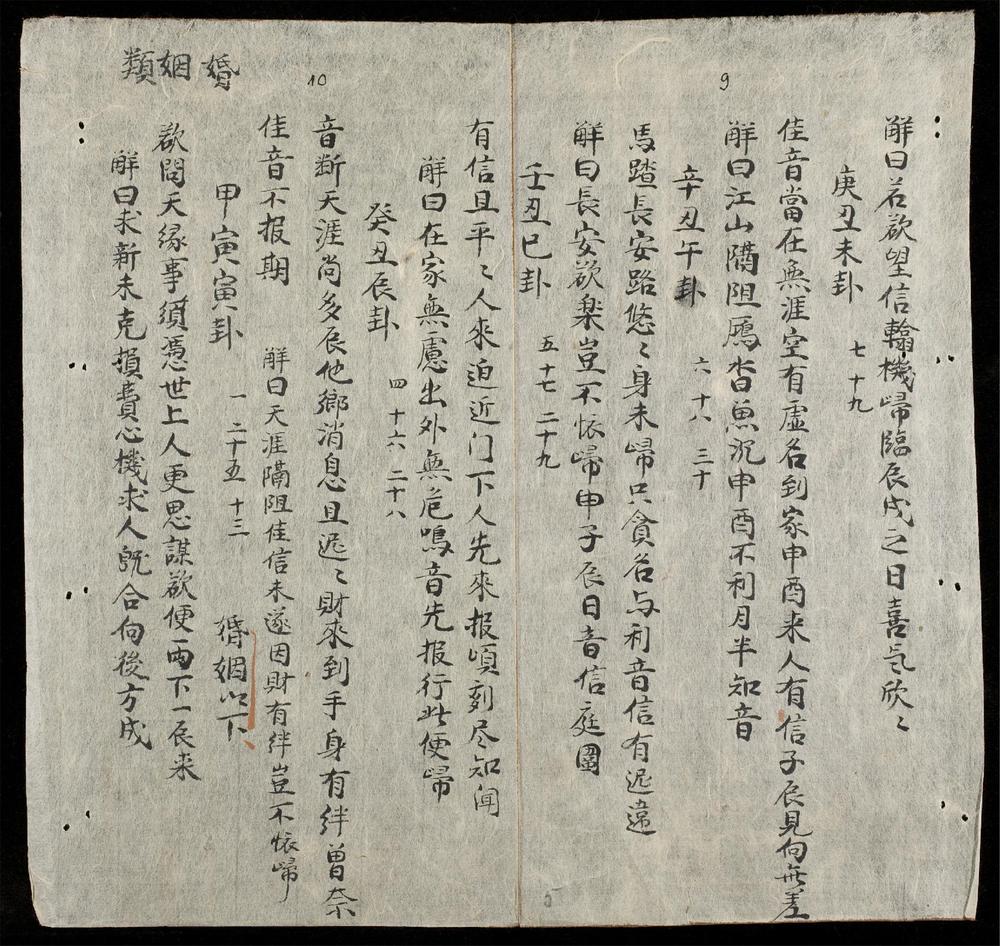 9
解曰若欲望信翰機歸臨辰戌之日喜気欣〻
庚丑未卦 七 十九
佳音當在無涯空有虚名到家申酉来人有信子辰見向無差
解曰江山隔阻鴈杳魚沉申酉不利月半知音
辛丑午卦 六 十八 三十
馬踏長安路悠〻身未歸只貪名与利音信有迟遠
解曰長安欲楽豈不懐歸申子辰日音信庭圍
壬丑巳卦 五 十七 二十九
有信且平〻人來迫近门下人先來报頃刻尽知闻
10
解曰在家無慮出外無危鳴音先报行此便歸
癸丑辰卦 四 十六 二十八
音断天涯尚多辰他鄉消息且迟〻財來到手身有絆曽奈
佳音不报期 解曰天涯隔阻佳信未遂因財有絆豈不懐歸
甲寅寅卦 一 二十五 十三 婚姻以下
婚姻類
欲問天縁事須憑世上人更思謀欲便両下一辰来
解曰求新未克損費心機求人既合向後方成